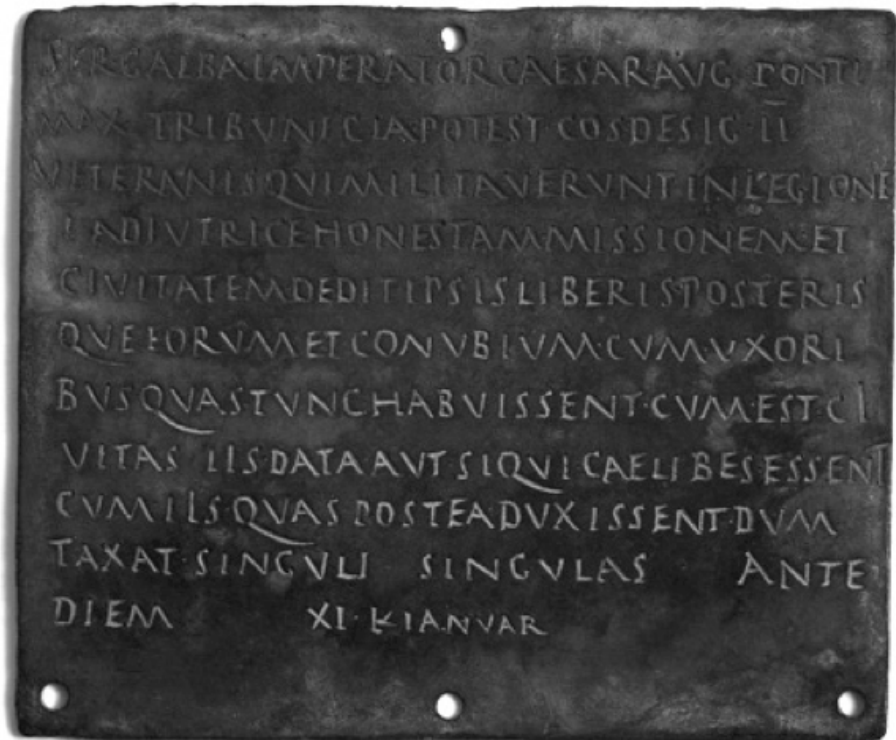 SER GALBA IMPERATOR CAESAR AVG PONTI
MAX TRIBVNICIA POTEST·COS DESIG·II
VETERANIS QVI MILITAVERVNT IN LEGIONE
I ADIVTRICE HONESTAM MISSIONEM ET
CIVITATEM DEDIT IPSIS LIBERIS POSTERIS
QVE EORVM ET CONVBIVM·CVM·VXORI
BVS QVAS TVNC HABVISSENT·CVM·EST·CI
VITAS IIS·DATA AVT SI QVI CAELIBES·ESSENT
CVM IIS·QVAS POSTEA DVXISSENT·DVM
TAXAT·SINGVLI SINGVLAS ANTE
DIEM XI·K IANVAR